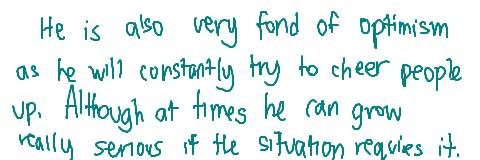 He is also very fond of optimism
as he will constantly try to cheer people
up. Although at times he can grow
really serious if the situation requies it.